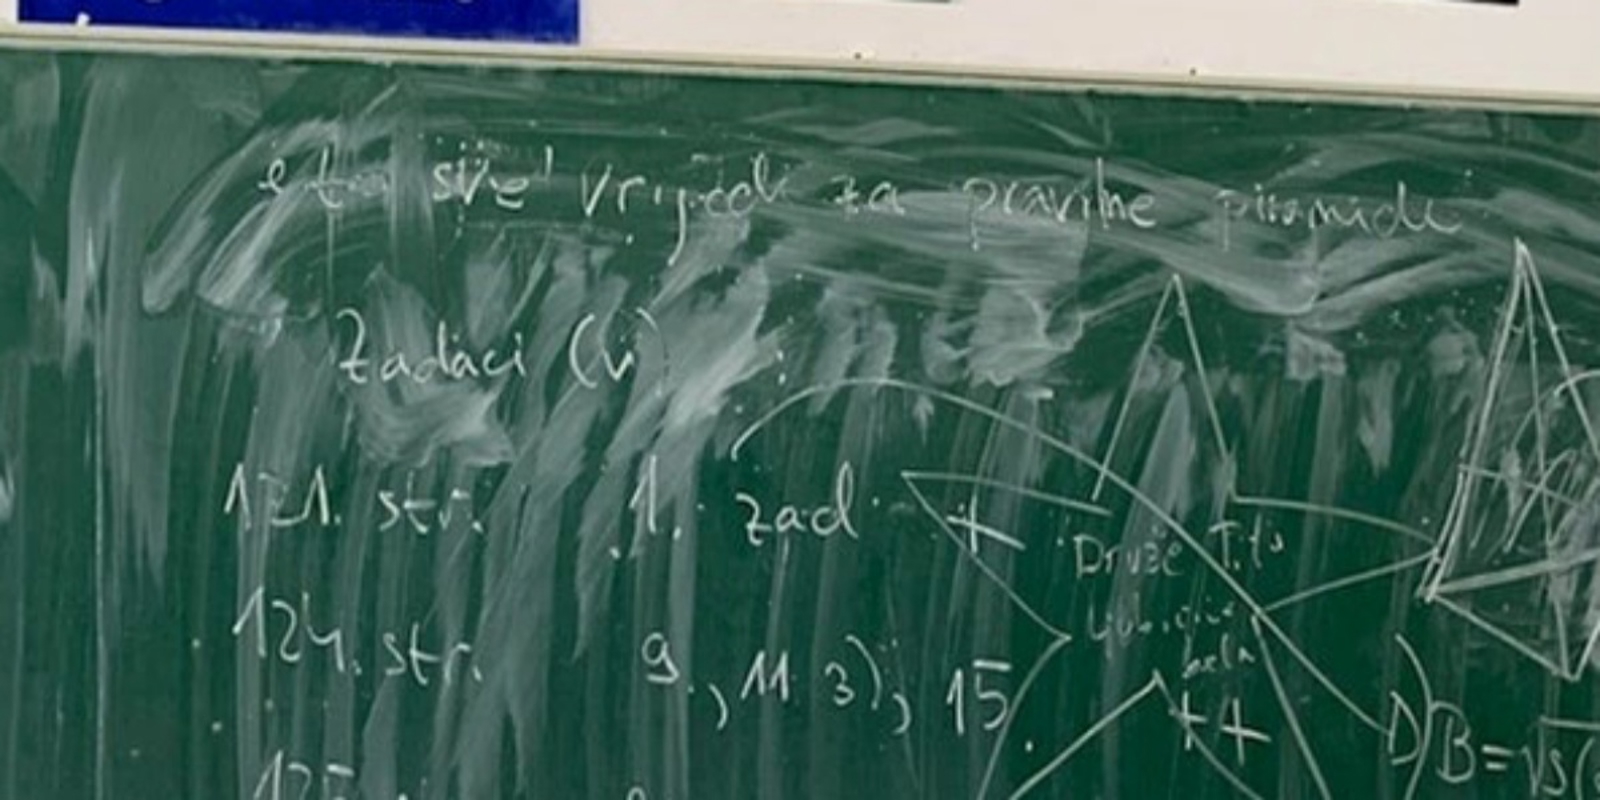 sve vrijedi za pravilne piramide
Zadaci (v) :
121. str. 1. zad
124. str. 9., 11. 3), 15.
Druže Tito
D) B = √s(